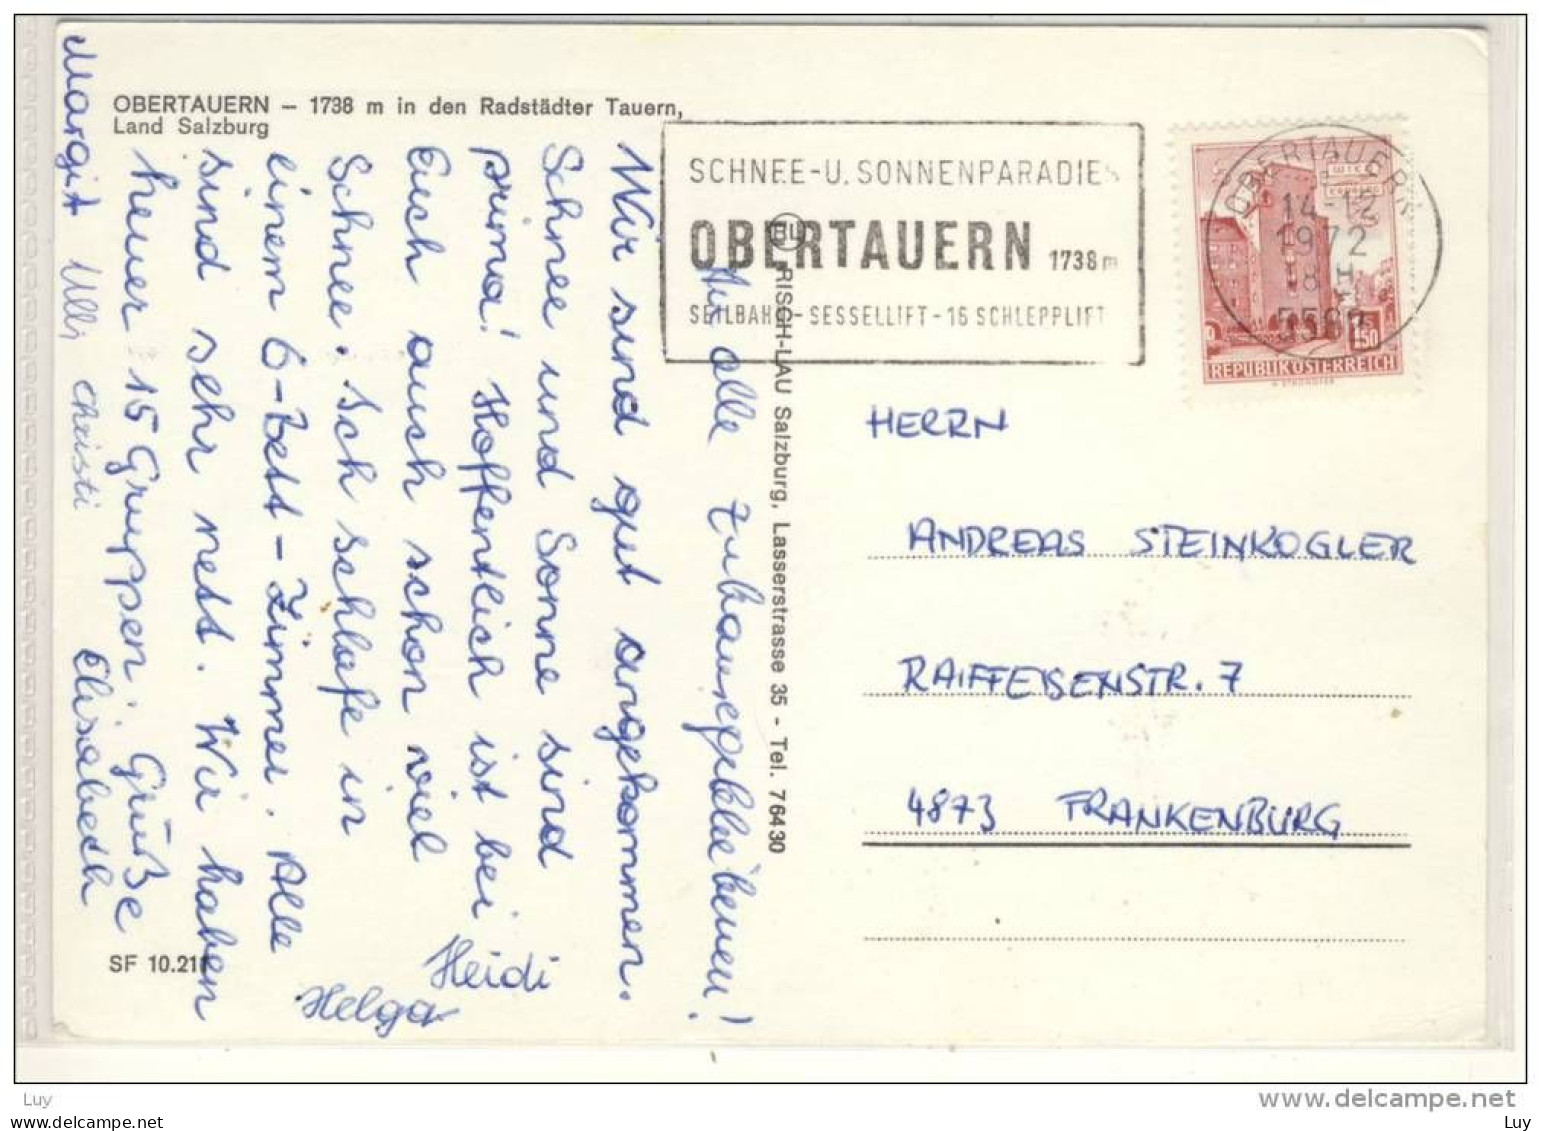 OBERTAUERN – 1738 m in den Radstädter Tauern,
Land Salzburg
An alle Zuhausegebliebenen!
Wir sind gut angekommen.
Schnee und Sonne sind
prima! Hoffentlich ist bei
Euch auch schon viel
Schnee. Ich schlafe in
einem 6-Bett-Zimmer. Alle
sind sehr nett. Wir haben
heuer 15 Gruppen. Grüße
Elisabeth
Margit Ulli Christi
Heidi
Helga
SF 10.211
RISCH-LAU Salzburg, Lasserstrasse 35 - Tel. 76430
SCHNEE-U. SONNENPARADIES
OBERTAUERN 1738m
SEILBAHN-SESSELLIFT-16 SCHLEPPLIFT
OBERTAUERN
14-12
1972
18 H
1.50
REPUBLIK ÖSTERREICH
HERRN
ANDREAS STEINKOGLER
RAIFFEISENSTR. 7
4873 FRANKENBURG
Luy
©www.delcampe.net
posta.cz
Luy